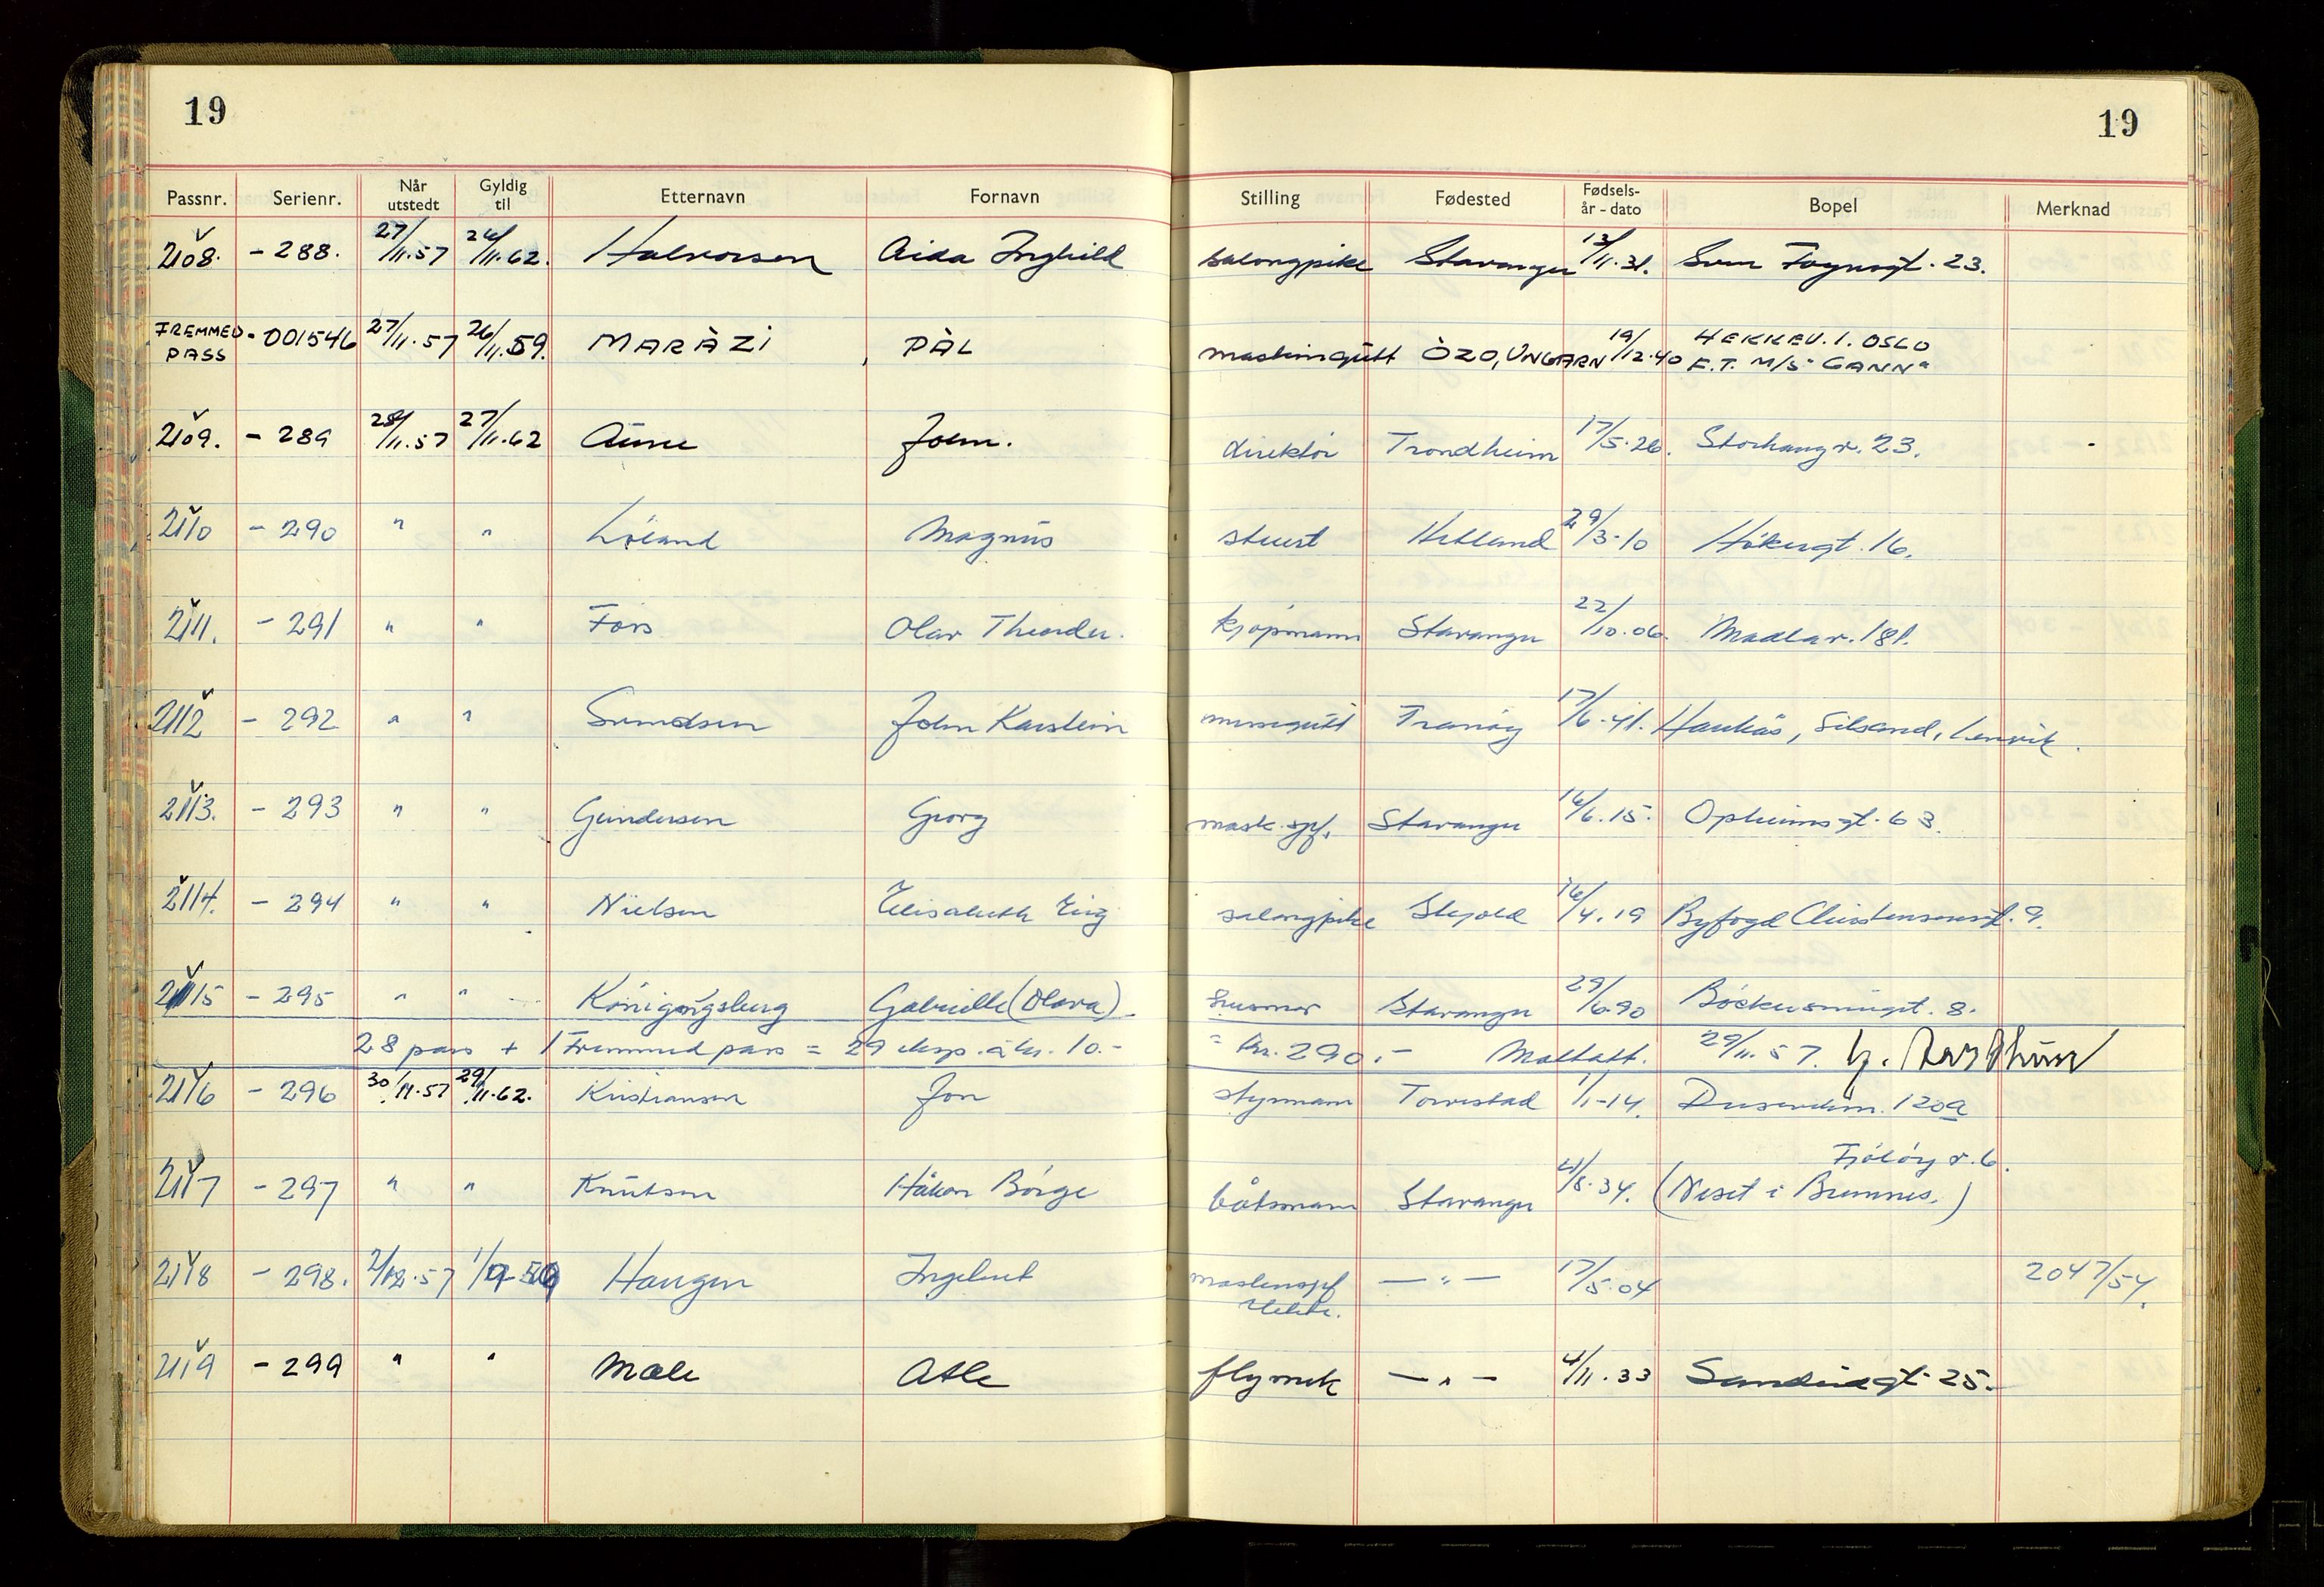 19 19
Passnr. Serienr. Når utstedt Gyldig til Etternavn Fornavn Stilling Fødested Fødsels- år - dato Bopel Merknad
2108. - 288. 27/11.57 26/11.62. Halvorsen Aida Inghild salongpike Stavanger 13/11.31. Sven Foynsgt. 23.
FREMMED PASS - 001546 27/11.57 26/11.59. MARÀZI PÀL maskingutt ÒZD, UNGARN 19/12.40 HEKKEV. 1. OSLO
F.T. M/S "GANN"
2109. - 289 28/11.57 27/11.62 Aune John. direktør Trondheim 17/5.26. Storhaugv. 23.
2110 - 290 " " Løland Magnus stuert Hetland 29/3.10 Håkonsgt. 16.
2111. - 291 " " Foss Olav Theodor. kjøpmann Stavanger 22/10.06. Madlav. 181.
2112 - 292 " " Svendsen John Karstein messegutt Tranøy 17/6.41. Haukås, Silsand, Lenvik.
2113. - 293 " " Gundersen Georg mask.sjef. Stavanger 16/6.15. Opheimsgt. 63.
2114. - 294 " " Nielsen Elisabeth salongpike Skjold 16/4.19 Byfogd Christensensgt. 9.
2115 - 295 " " Königsberg Gabrielle (Olava). husmor Stavanger 29/6.90 Bøckersmuget. 8.
28 pass + 1 Fremmedpass = 29 eksp. à kr. 10.- = Kr. 290.- Mottatt. 29/11.57.
2116 - 296 30/11.57 29/11.62. Kristiansen Jon styrmann Torvestad 1/1-14. Dusevikm. 120a
2117 - 297 " " Knutsen Håkon Børge båtsmann Stavanger 4/8.34. Fjøløy v. 6.
(Neset i Bremnes.)
2118 - 298. 2/12.57 Haugen Ingebret maskinsjef — " — 17/5.04 2047/54.
2119 - 299 " " Mæle Atle flymek — " — 4/11.33 Sandeidgt. 25.